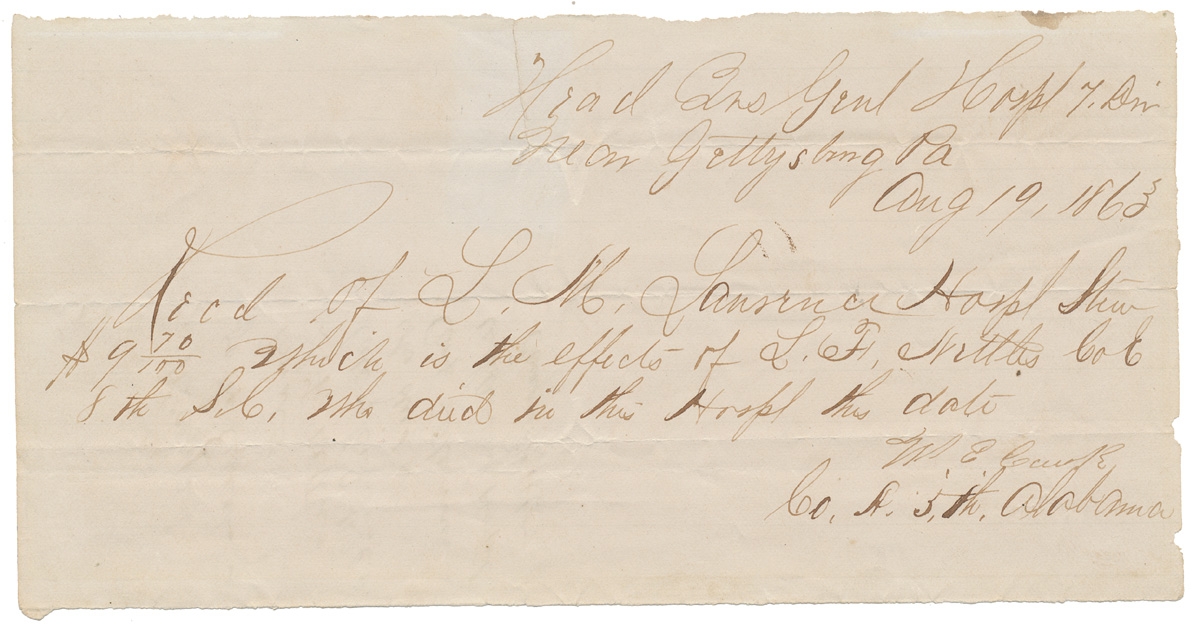 Head Qrs Genl Hospl 7. Div
Near Gettysburg Pa
Aug 19, 1863
Recd of L. M. Lawrence Hospl Stew
$ 9 70/100 Which is the effects of L. F. Nettles Co E
8th S.C. Who died in this Hospl this date
W E
Co. A. 5th. Alabama